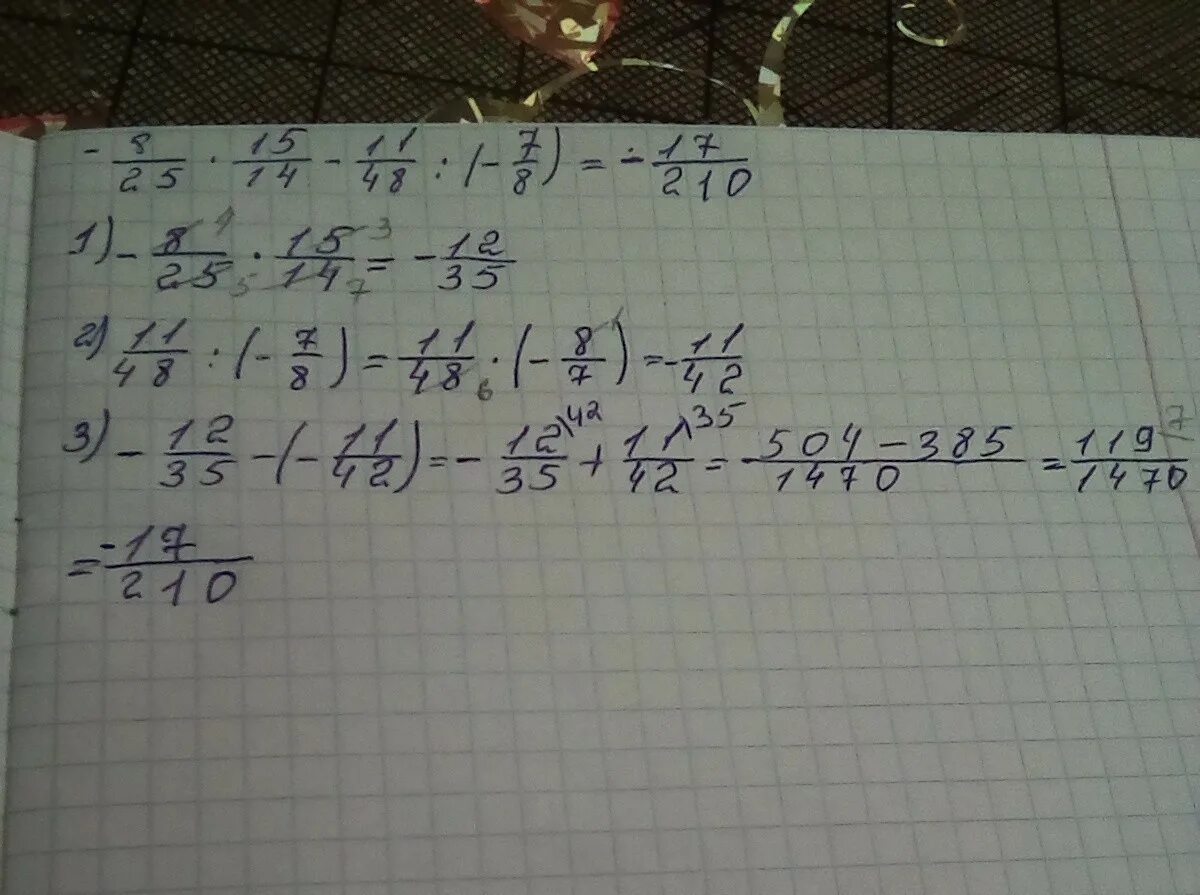 - 8/25 · 15/14 - 11/48 : (- 7/8) = - 17/210
1) - 8 4/25 5 · 15 3/14 7 = - 12/35
2) 11/48 : (- 7/8) = 11/48 6 · (- 8 1/7) = - 11/42
3) - 12/35 - (- 11/42) = - 12\42/35 + 11\35/42 = - 504 - 385/1470 = 119 7/1470
= -17/210